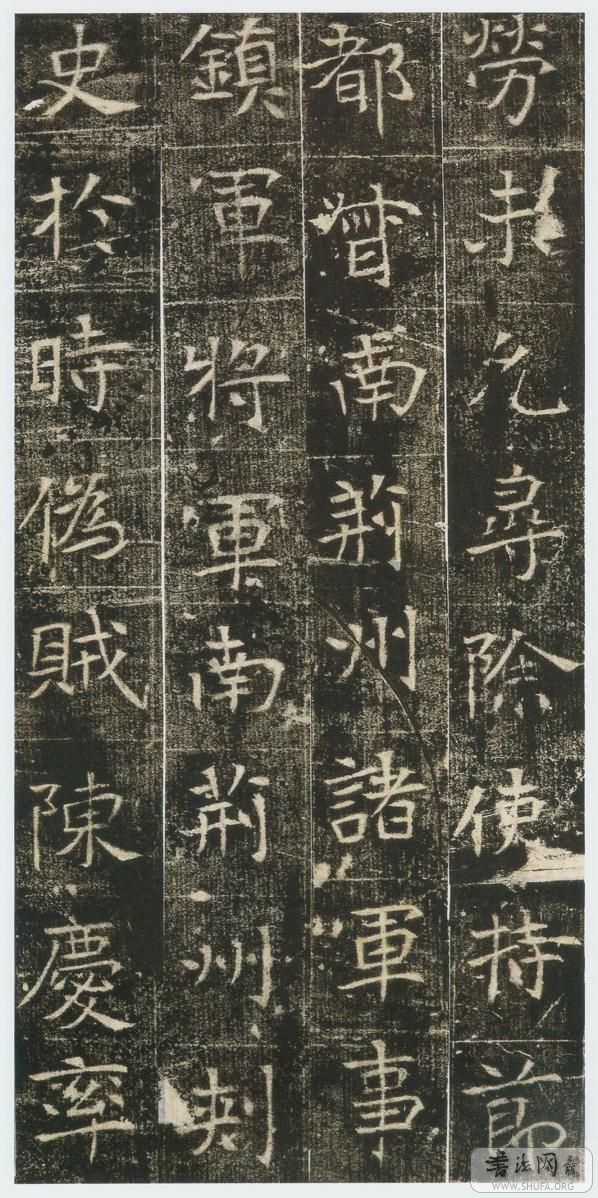 勞求允尋除使持節
都督南荊州諸軍事
鎮軍將軍南荊州刺
史於時偽賊陳慶率
書法网
WWW.SHUFA.ORG